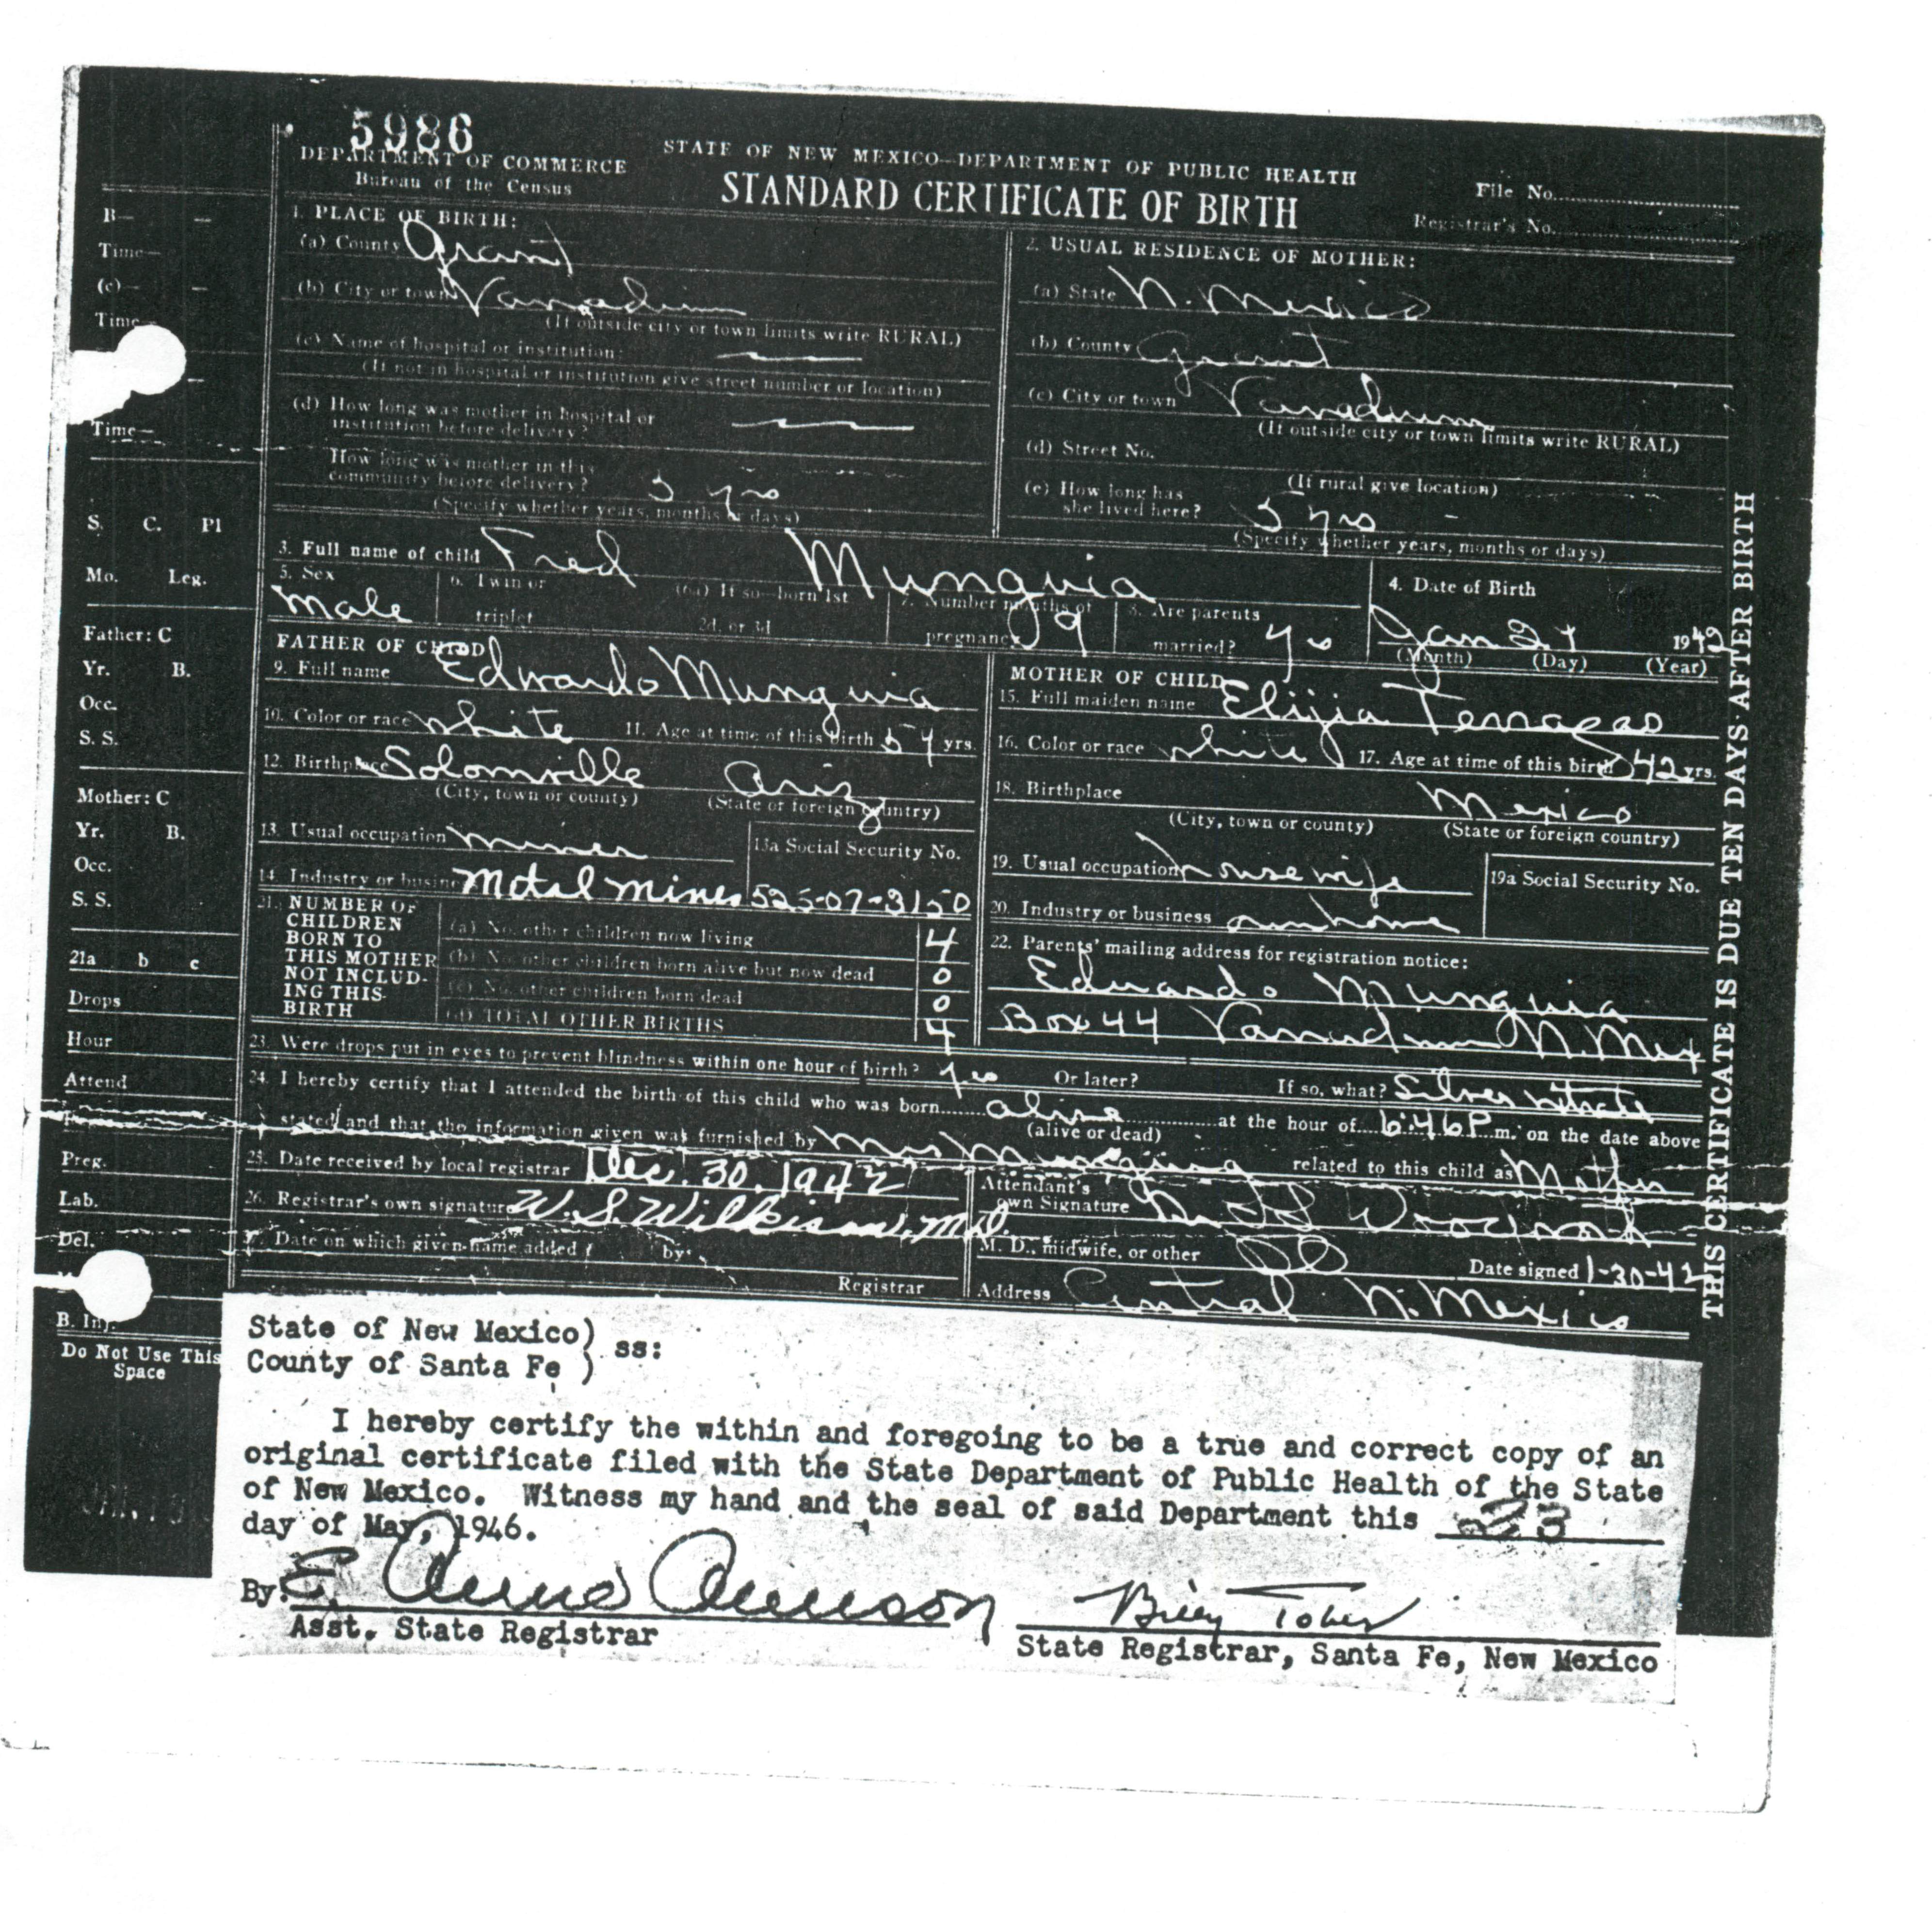 5986
DEPARTMENT OF COMMERCE
Bureau of the Census
STATE OF NEW MEXICO—DEPARTMENT OF PUBLIC HEALTH
STANDARD CERTIFICATE OF BIRTH
File No.
Registrar's No.
B—
Time—
(c)—
Time—
Time—
S. C. Pl
Mo. Leg.
Father: C
Yr. B.
Occ.
S. S.
Mother: C
Yr. B.
Occ.
S. S.
21a b c
Drops
Hour
Attend
Preg.
Lab.
Del.
B. Inj.
Do Not Use This
Space
1. PLACE OF BIRTH:
(a) County Grant
(b) City or town Vanadium
(If outside city or town limits write RURAL)
(c) Name of hospital or institution:
(If not in hospital or institution give street number or location)
(d) How long was mother in hospital or
institution before delivery?
How long was mother in this
community before delivery? 5 yrs
(Specify whether years, months or days)
2. USUAL RESIDENCE OF MOTHER:
(a) State N. Mexico
(b) County Grant
(c) City or town Vanadium
(If outside city or town limits write RURAL)
(d) Street No.
(If rural give location)
(e) How long has
she lived here? 5 yrs
(Specify whether years, months or days)
3. Full name of child Fred Munguia
4. Date of Birth
Jan 1942
(Month) (Day) (Year)
5. Sex
male
6. Twin or
triplet
(6a) If so—born 1st
2d, or 3d
7. Number months of
pregnancy 9
8. Are parents
married? yes
FATHER OF CHILD
9. Full name Edwardo Munguia
10. Color or race white 11. Age at time of this birth 54 yrs.
12. Birthplace Solomville Ariz
(City, town or county) (State or foreign country)
13. Usual occupation miner
13a Social Security No.
14. Industry or business Metal mines 525-07-3150
MOTHER OF CHILD
15. Full maiden name Elijia Terrazas
16. Color or race white 17. Age at time of this birth 42 yrs.
18. Birthplace Mexico
(City, town or county) (State or foreign country)
19. Usual occupation housewife
19a Social Security No.
20. Industry or business own home
21. NUMBER OF
CHILDREN
BORN TO
THIS MOTHER
NOT INCLUD-
ING THIS
BIRTH
(a) No. other children now living 4
(b) No. other children born alive but now dead 0
(c) No. other children born dead 0
(d) TOTAL OTHER BIRTHS 4
22. Parents' mailing address for registration notice:
Eduardo Munguia
Box 44 Vanadium N. Mex
23. Were drops put in eyes to prevent blindness within one hour of birth? yes Or later? If so, what? Silver nitrate
24. I hereby certify that I attended the birth of this child who was born alive at the hour of 6:46 P m. on the date above
(alive or dead)
stated and that the information given was furnished by Mrs Munguia related to this child as Mother
25. Date received by local registrar Dec. 30. 1942
26. Registrar's own signature W. S. Wilkinson, M.D.
27. Date on which given name added by
Registrar
Attendant's
own Signature
M. D., midwife, or other Date signed 1-30-42
Address Central N. Mexico
THIS CERTIFICATE IS DUE TEN DAYS AFTER BIRTH
State of New Mexico)
County of Santa Fe ) ss:
I hereby certify the within and foregoing to be a true and correct copy of an
original certificate filed with the State Department of Public Health of the State
of New Mexico. Witness my hand and the seal of said Department this 23
day of May, 1946.
By:
Asst. State Registrar
Billy Tober
State Registrar, Santa Fe, New Mexico